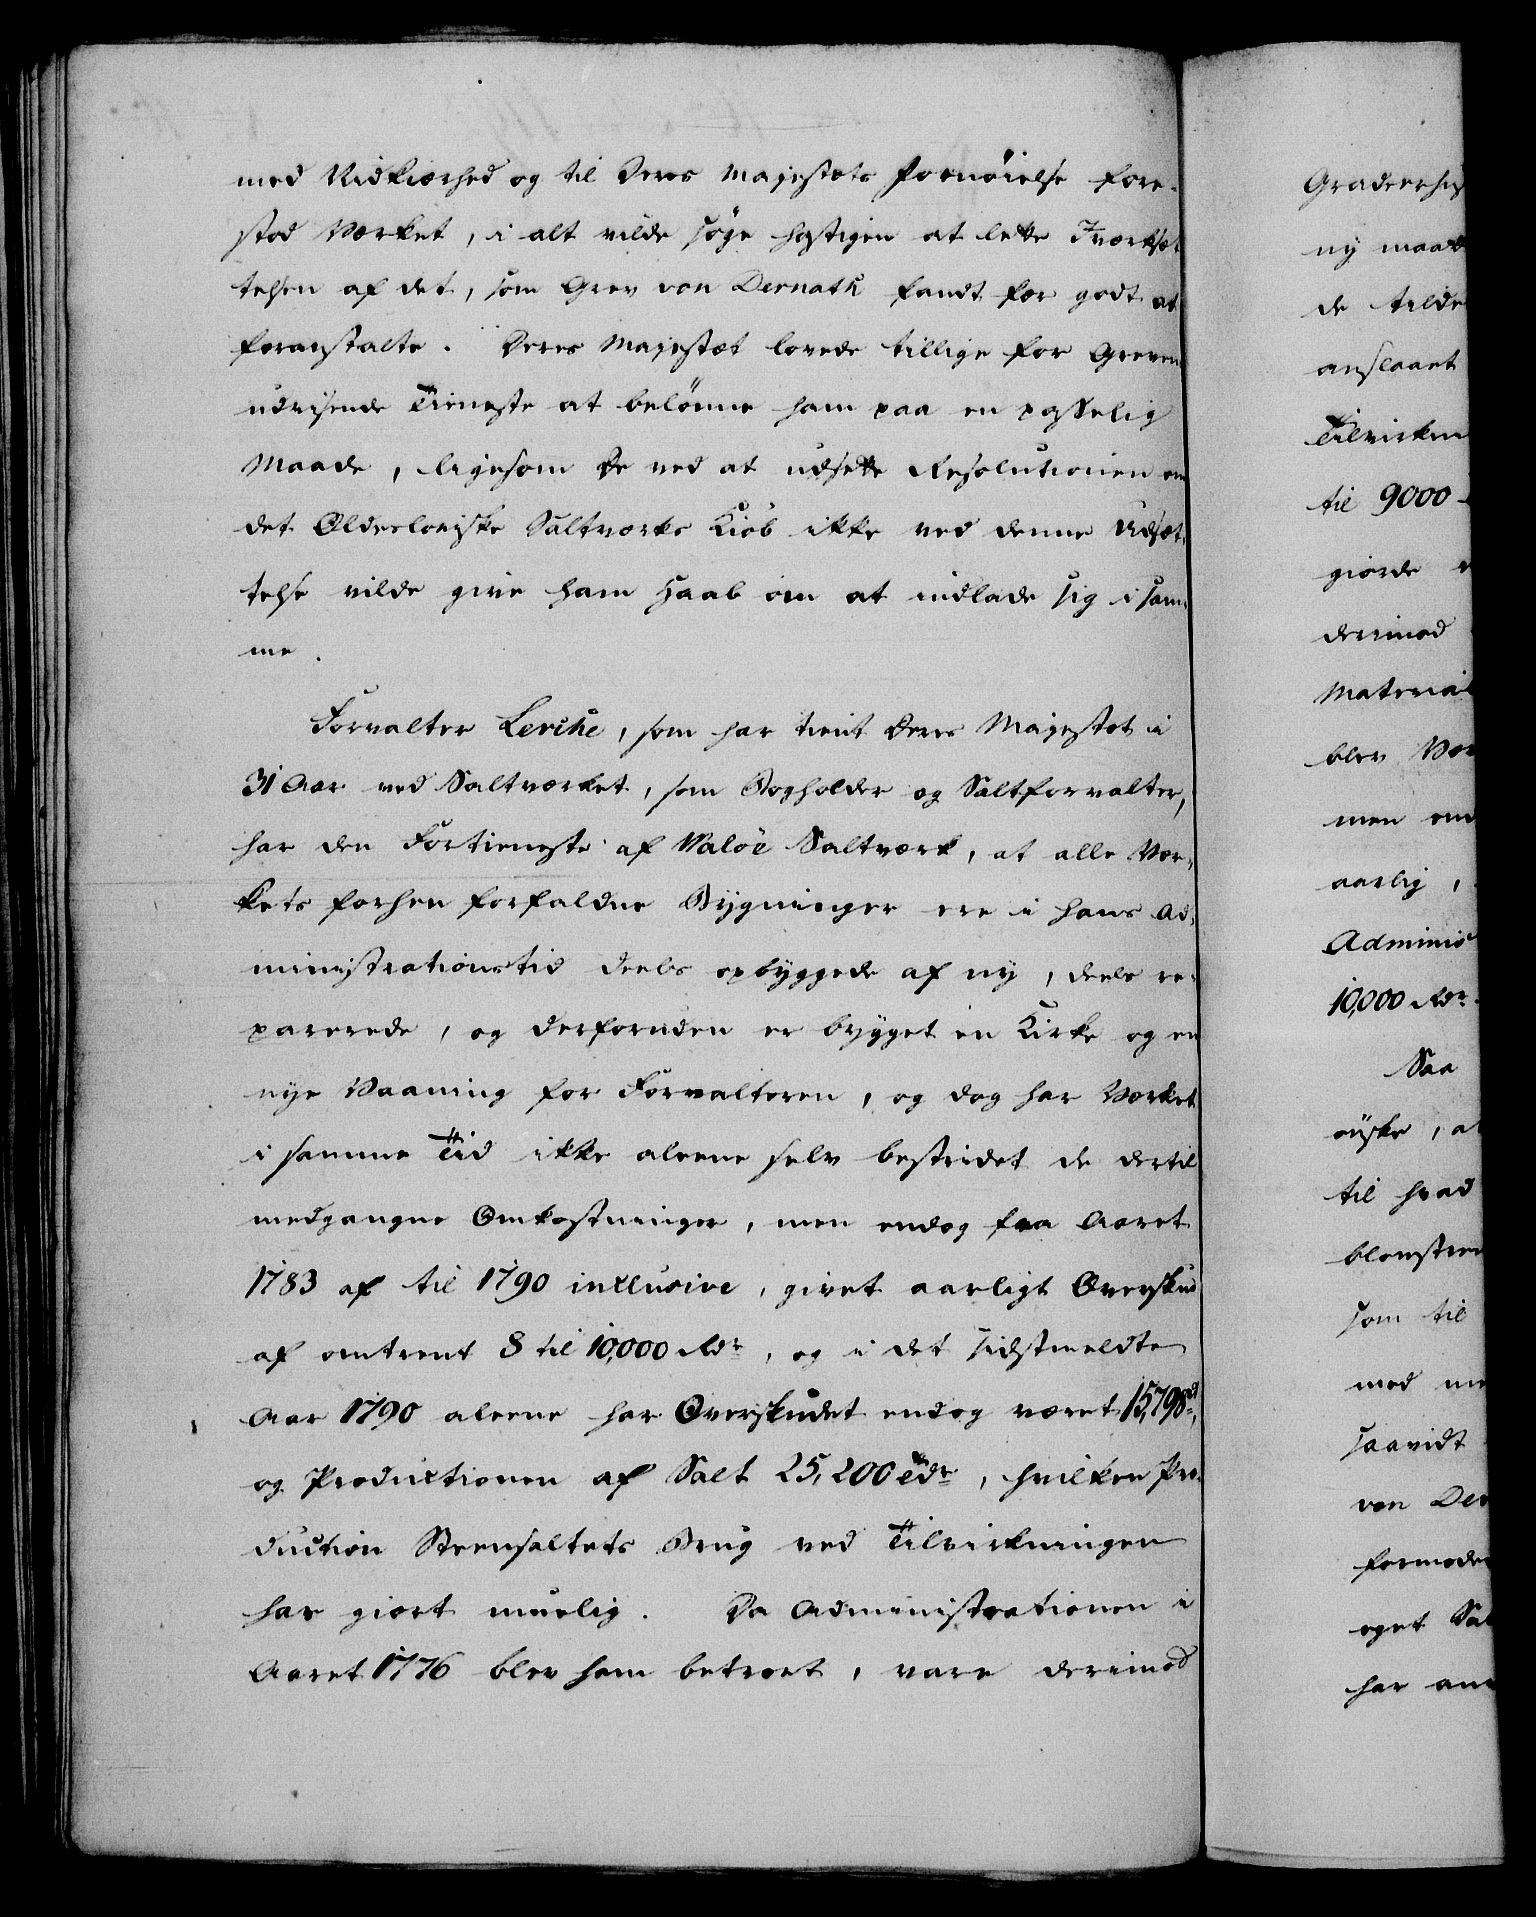 med Nidkiærhed og til Deres Majestæts Fornöielse fore-
stod Værket, i alt vilde söge hastigen at lette Iværksæt
telsen af det, som Grev von Dernath fandt for godt at
foranstalte. Deres Majestæt lovede tillige for Greven
udvisende Tieneste at belönne ham paa en passelig
Maade, ligesom De ved at udsette Resolutionen om
det Oldesloeiske Saltværks Kiöb ikke ved denne Udsæt-
telse vilde give ham Haab om at indlade sig i sam-
me.
Forvalter Lerche, som har tient Deres Majestæt i
31 Aar ved Saltværket, som Bogholder og Saltforvalter,
har den Fortieneste af Valöe Saltværk, at alle Vær-
kets forhen forfaldne Bygninger ere i hans Ad-
ministrationstid deels opbyggede af ny, deels re-
parerede, og derforuden er bygget en Kirke og en
nye Vaaning for Forvalteren, og dog har Værket
i samme Tid ikke aleene selv bestridet de dertil
medgangne Omkostninger, men endog fra Aaret
1783 af til 1790 inclusive, givet aarligt Overskud
af omtrent 8 til 10,000 Rdr, og i det sidstmeldte
Aar 1790 aleene har Overskudet endog været 15,798rd,
og Productionen af Salt 25,200 Tdr, hvilken Pro-
duction Steensaltets Brug ved Tilvirkningen
har giort muelig. Da Administrationen i
Aaret 1776 blev ham betroet, vare derimod
Gradeerhus
ny maatte
de tilde
anslaaet
Tilvirkn
til 9000
giorde
derimod
Material
blev Vær
men end
aarlig,
Adminis
10,000 Rdr.
Saa
önske, a
til hvad
blomstren
som til
med
saavidt
von Der
formode
eget Sal
har an